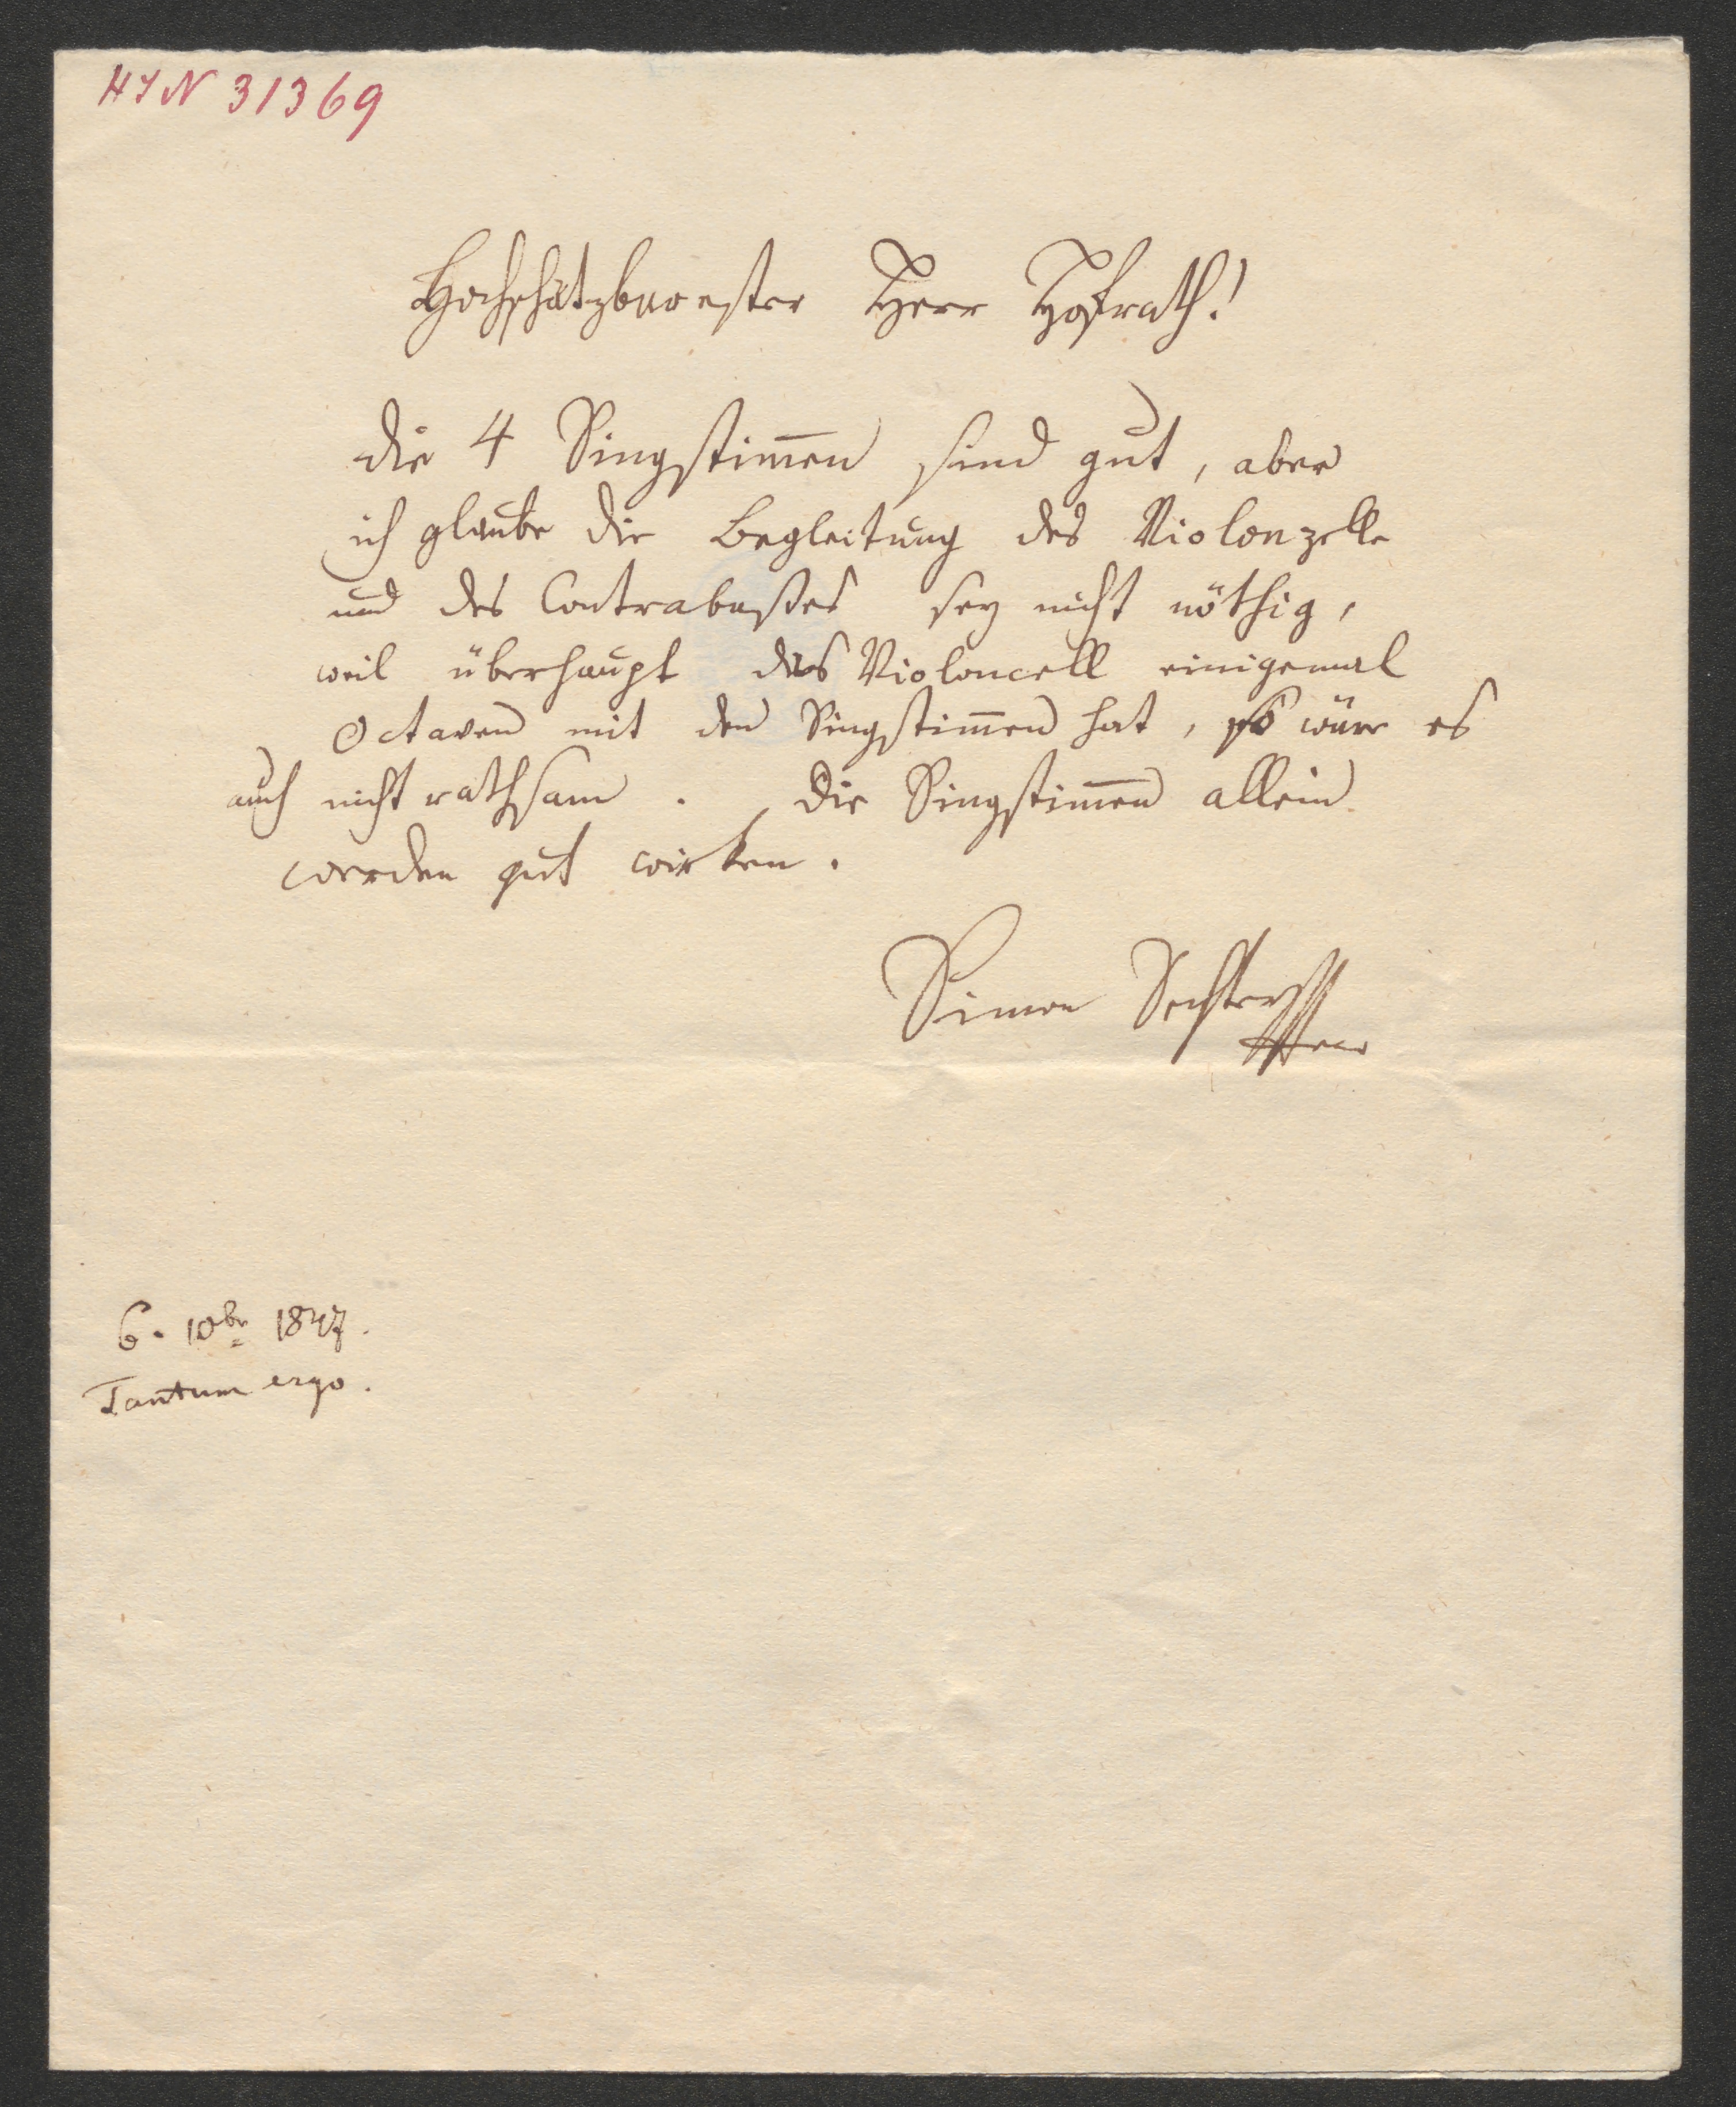 HIN 31369
Hochschätzbarester Herr Hofrath!
Die 4 Singstim̅en sind gut, aber
ich glaube die Begleitung des Violonzells
und des Contrabaßes sey nicht nöthig,
weil überhaupt das Violoncell einigemal
Octaven mit den Singstim̅en hat, so wäre es
auch nicht rathsam. Die Singstim̅en allein
werden gut wirken.
Simon Sechter
6. 10br 1847.
Tantum ergo.